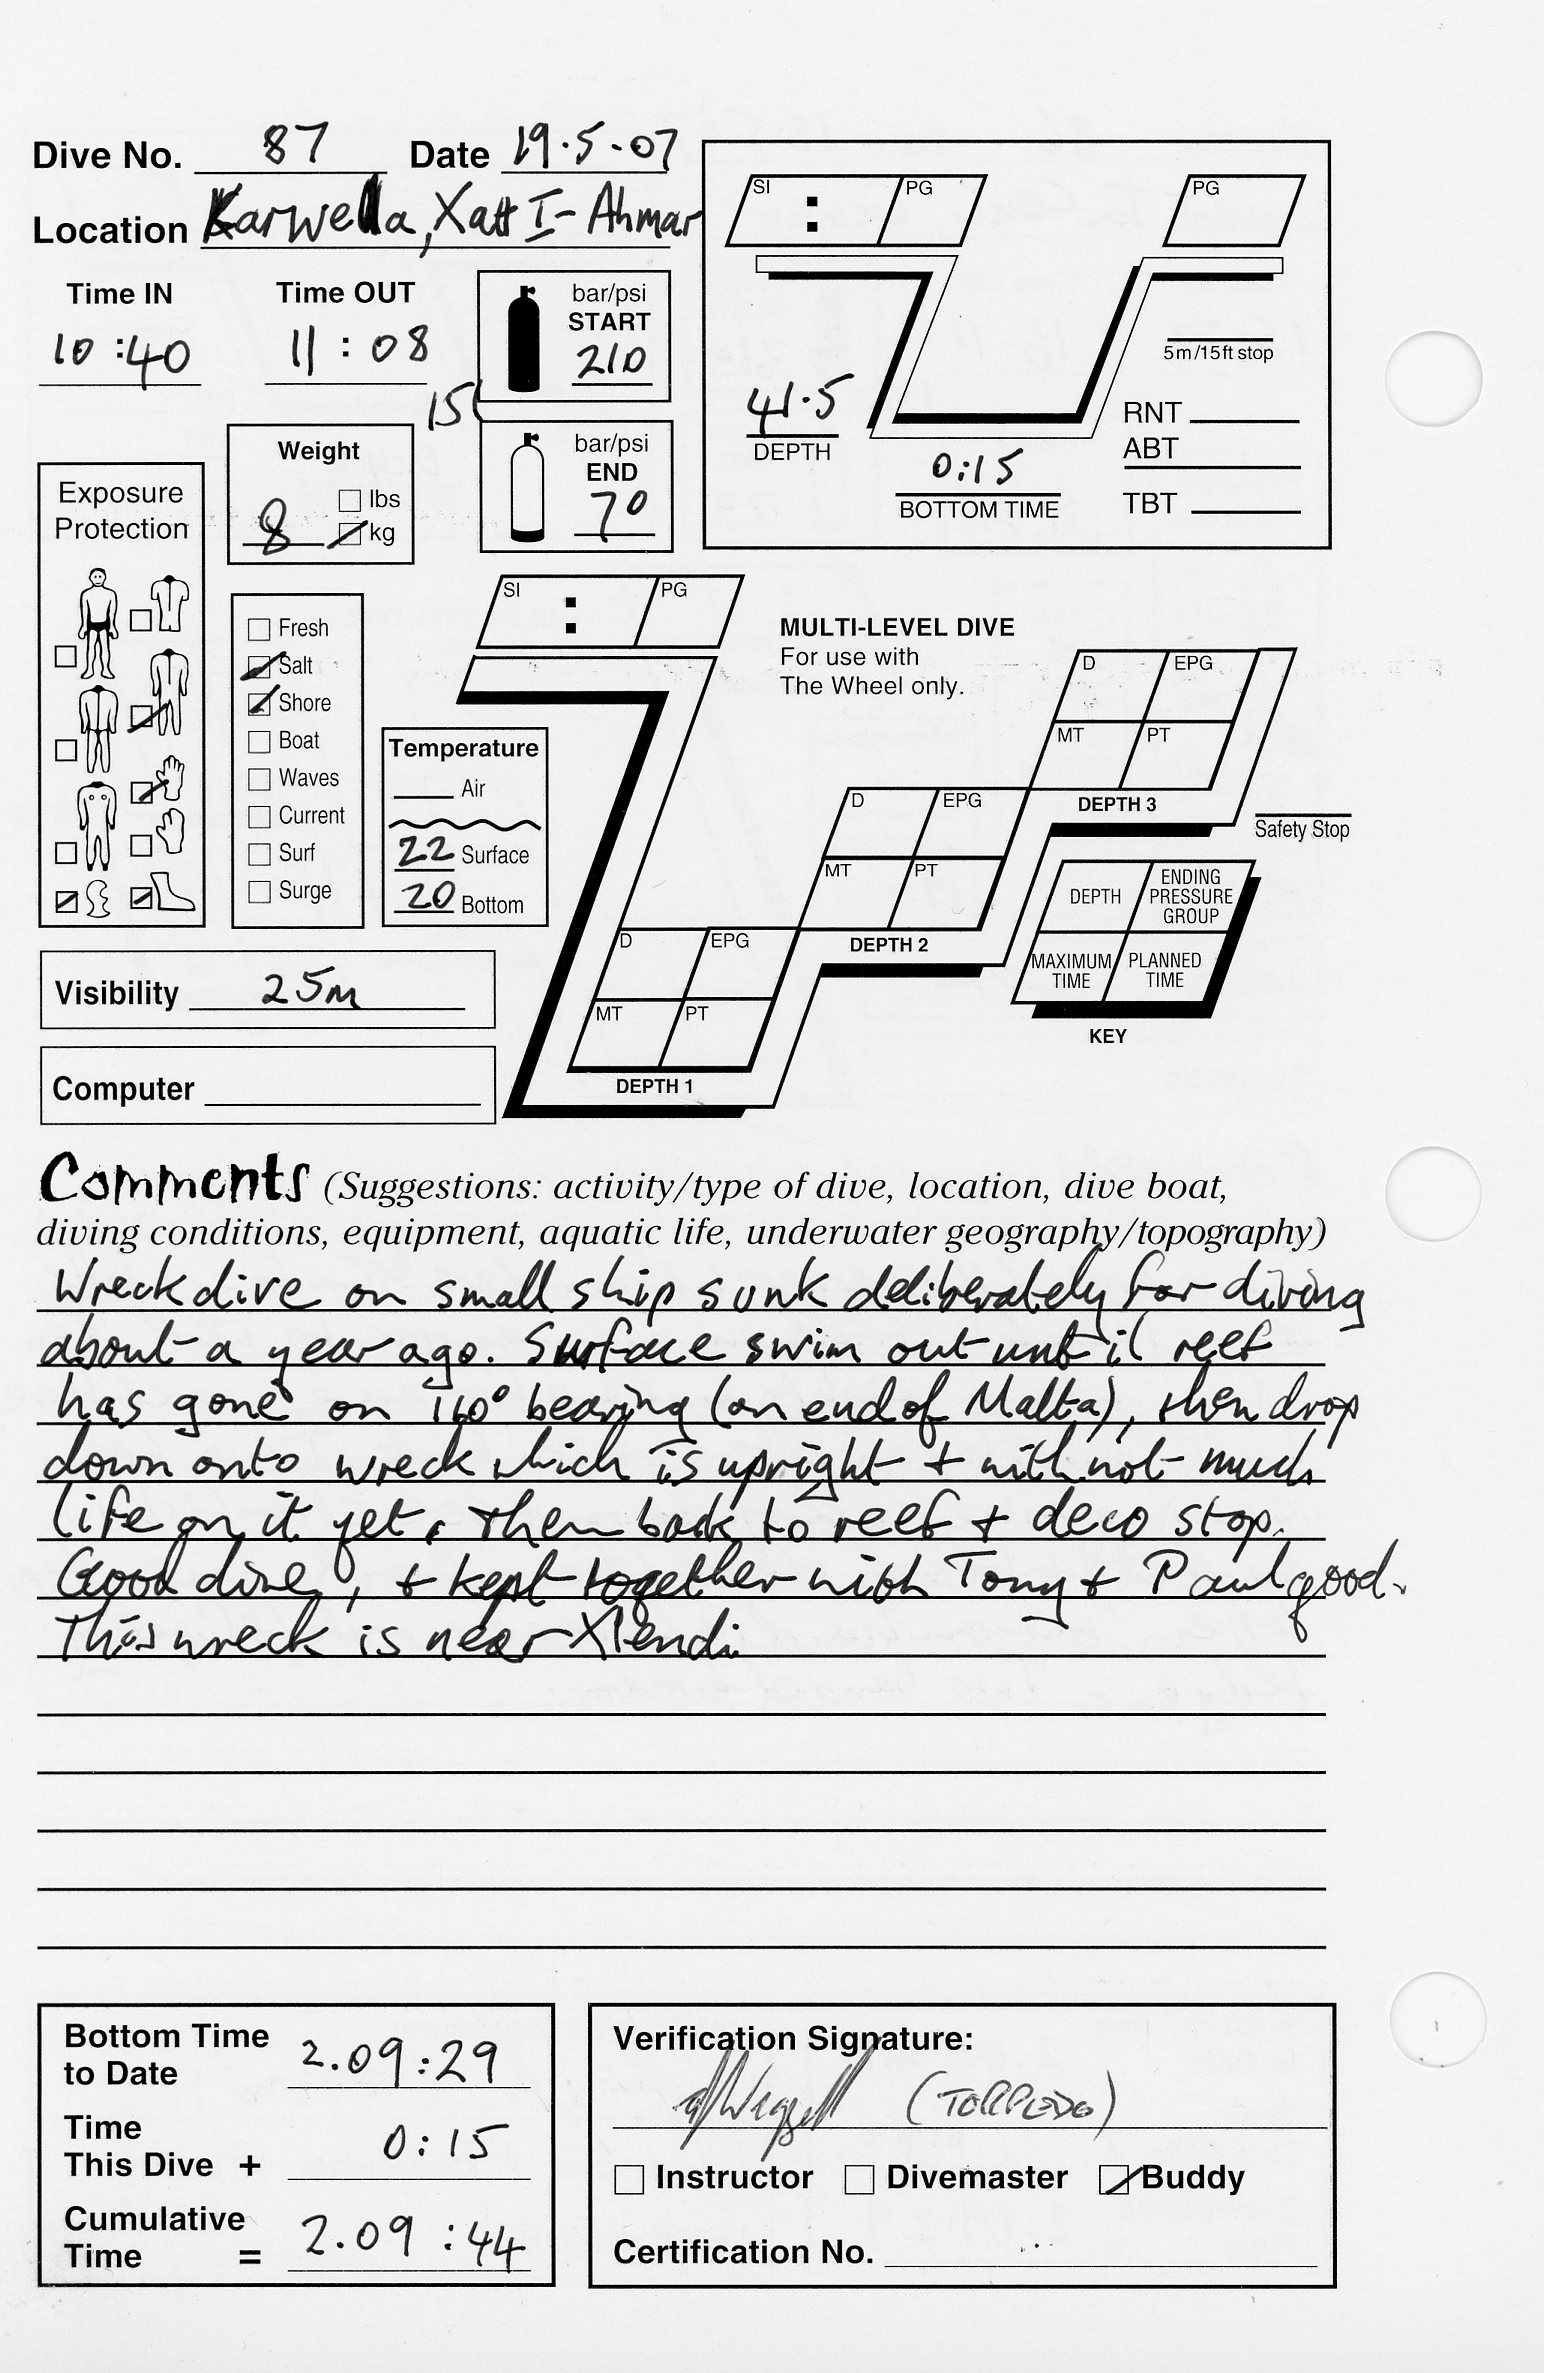 Dive No. 87 Date 19.5.07
Location Karwella, Xatt I-Ahmar
Time IN Time OUT
10:40 11:08
bar/psi
START
210
15l
bar/psi
END
70
Weight
lbs
8 kg
Exposure
Protection
Fresh
Salt
Shore
Boat
Waves
Current
Surf
Surge
Temperature
Air
22 Surface
20 Bottom
Visibility 25m
Computer
SI : PG
PG
5m/15ft stop
41.5
DEPTH
0:15
BOTTOM TIME
RNT
ABT
TBT
SI : PG
MULTI-LEVEL DIVE
For use with
The Wheel only.
D EPG
MT PT
DEPTH 3
D EPG
MT PT
DEPTH 2
D EPG
MT PT
DEPTH 1
Safety Stop
DEPTH
ENDING
PRESSURE
GROUP
MAXIMUM
TIME
PLANNED
TIME
KEY
Comments (Suggestions: activity/type of dive, location, dive boat,
diving conditions, equipment, aquatic life, underwater geography/topography)
Wreck dive on small ship sunk deliberately for diving
about a year ago. Surface swim out until reef
has gone on 160° bearing (on end of Malta), then drop
down onto wreck which is upright + with not much
life on it yet. Then back to reef + deco stop.
Good dive, + kept together with Tony + Paul good.
This wreck is near Xlendi.
Bottom Time
to Date 2.09:29
Time
This Dive + 0:15
Cumulative
Time = 2.09:44
Verification Signature:
(TORPEDO)
Instructor Divemaster Buddy
Certification No.